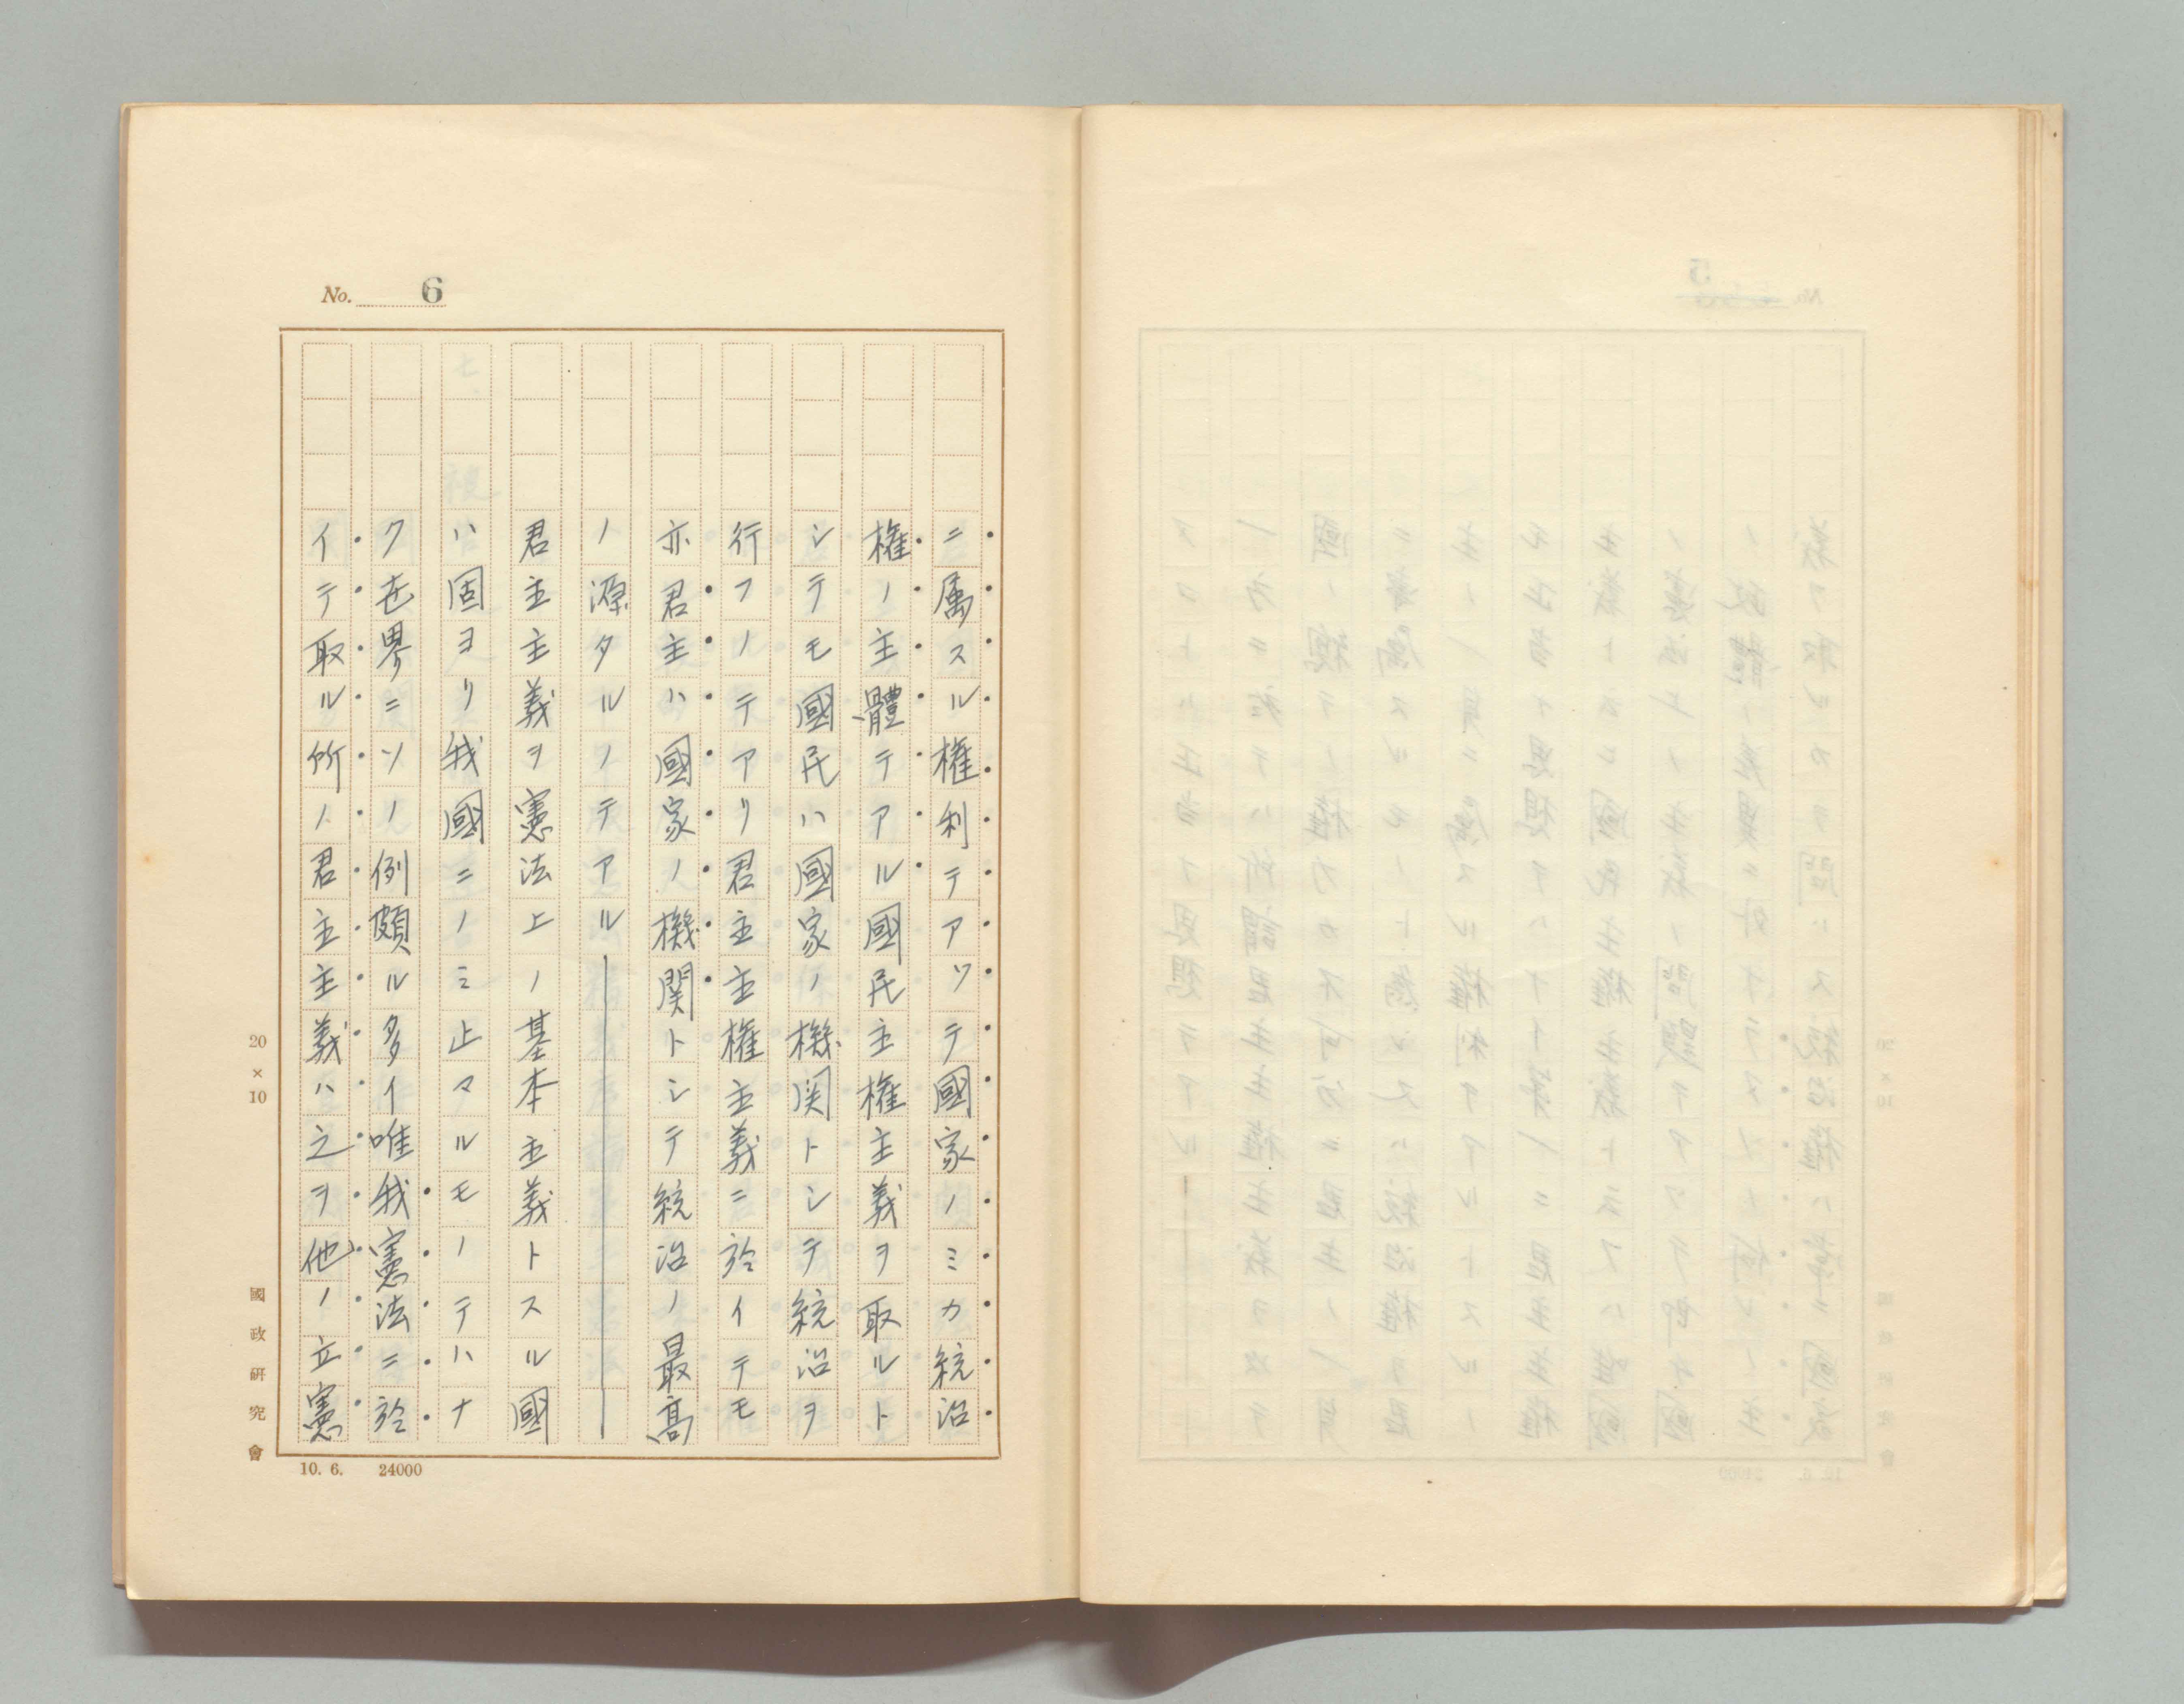 No. 6
ニ属スル権利テアツテ國家ノミカ統治
権ノ主體テアル國民主権主義ヲ取ルト
シテモ國民ハ國家ノ機関トシテ統治ヲ
行フノテアリ君主主権主義ニ於イテモ
亦君主ハ國家ノ機関トシテ統治ノ最高
ノ源タルノテアル――
君主主義ヲ憲法上ノ基本主義トスル國
ハ固ヨリ我國ニノミ止マルモノテハナ
ク世界ニソノ例頗ル多イ唯我憲法ニ於
イテ取ル所ノ君主主義ハ之ヲ他ノ立憲
20×10
國政研究會
10. 6. 24000